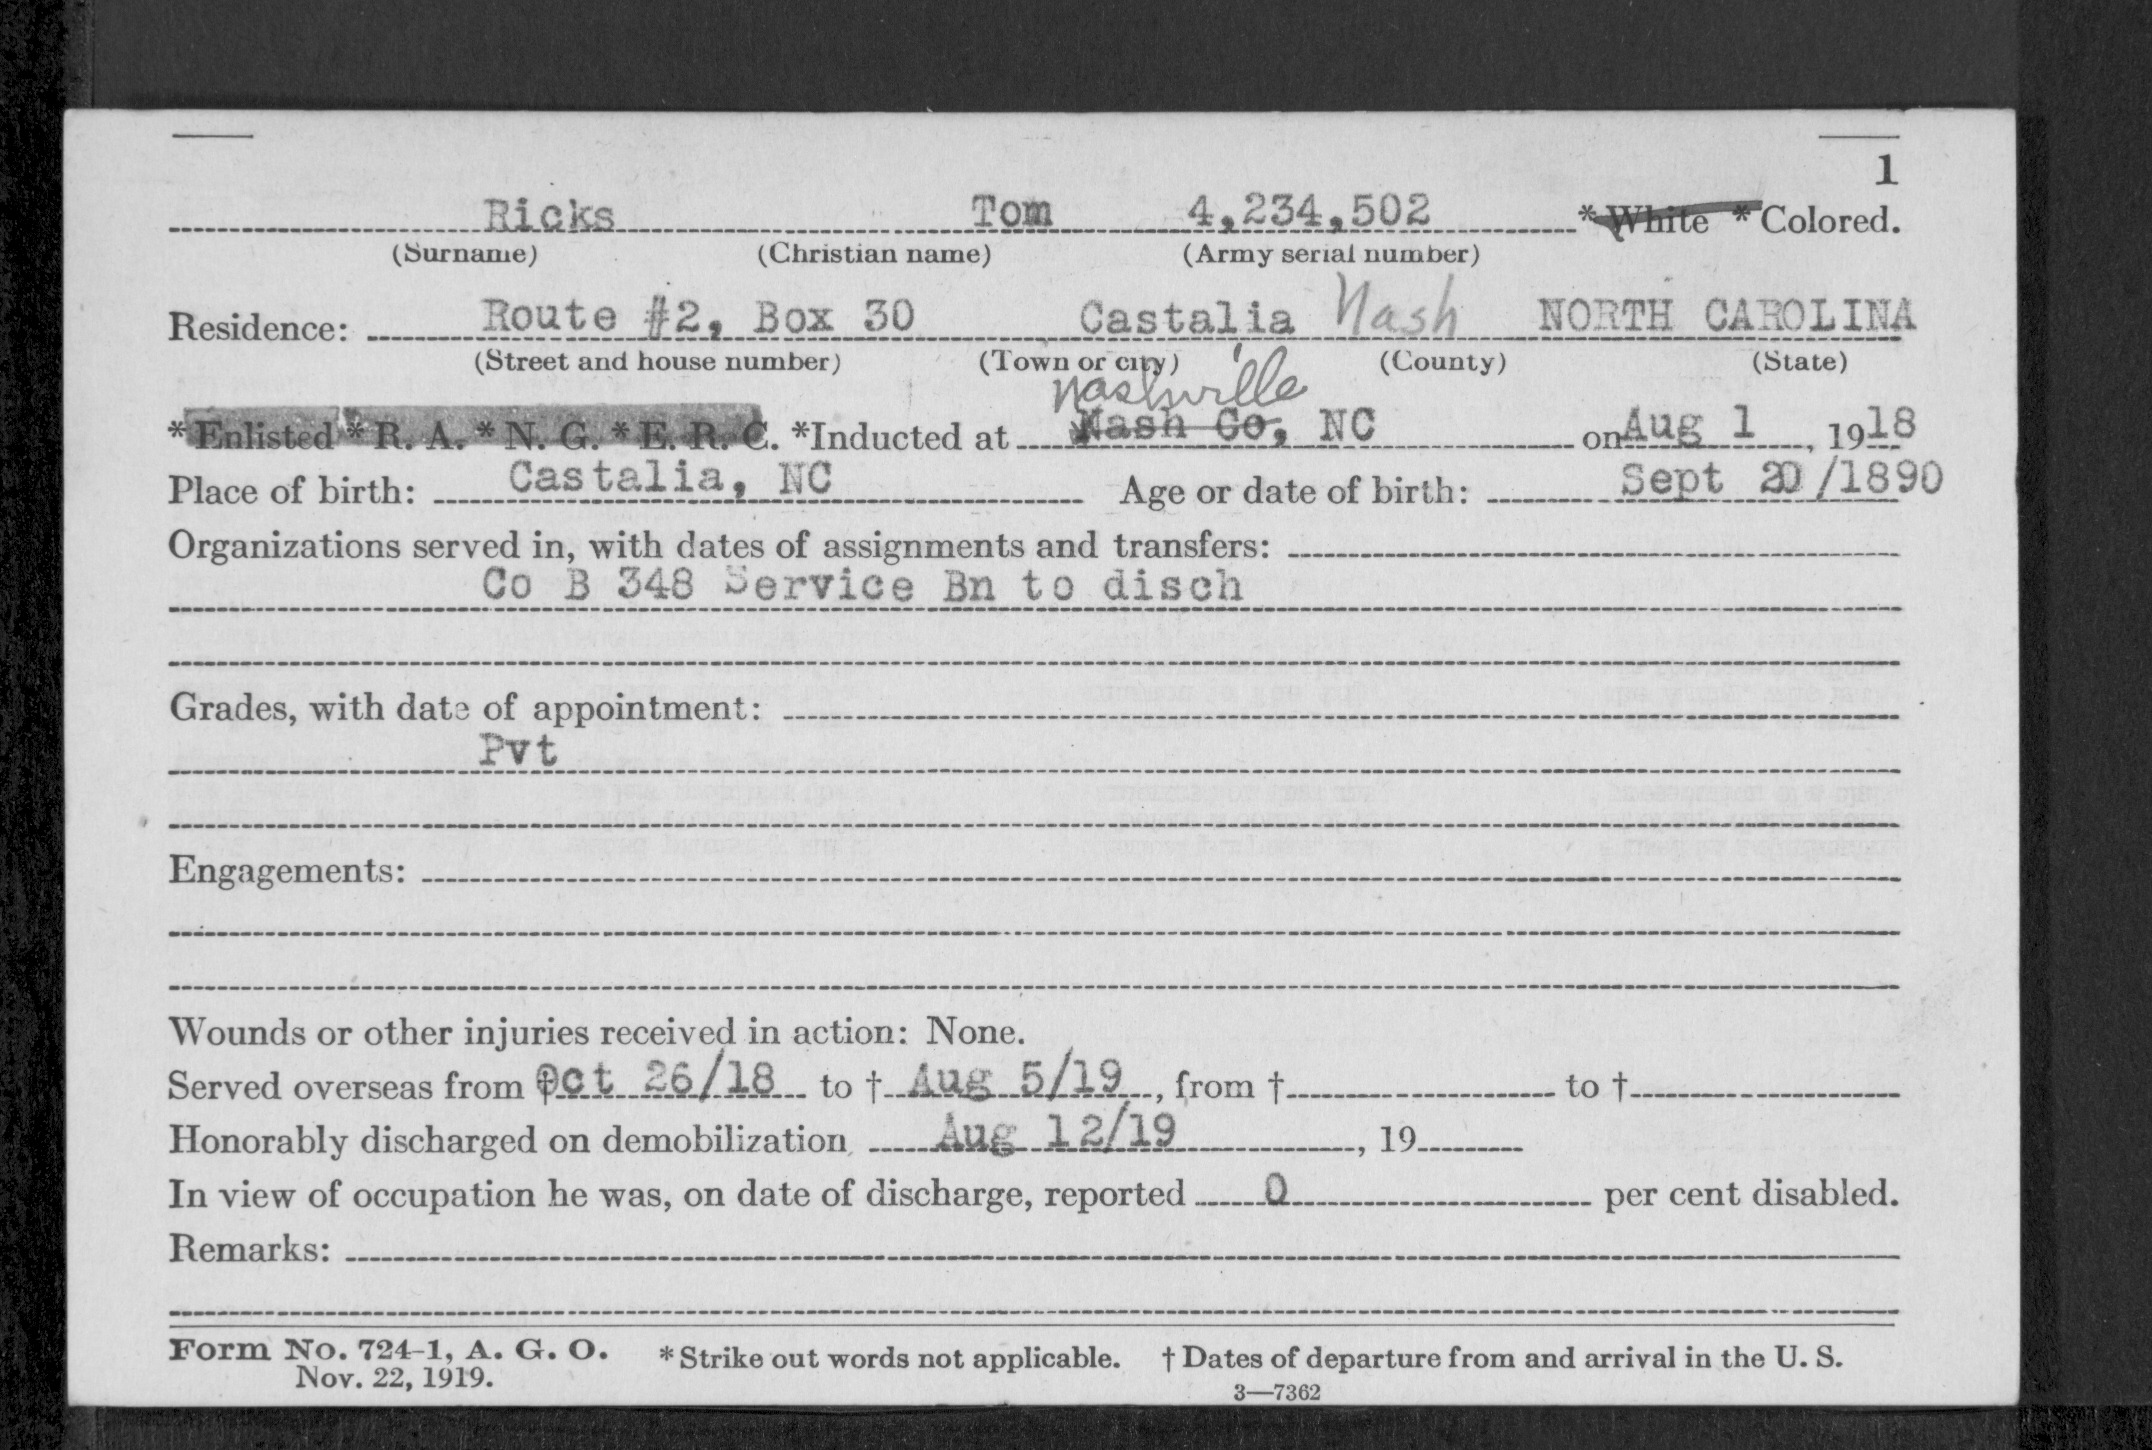 1
Ricks Tom 4,234,502 *White *Colored.
(Surname) (Christian name) (Army serial number)
Residence: Route #2, Box 30 Castalia Nash NORTH CAROLINA
(Street and house number) (Town or city) (County) (State)
Nashville
*Enlisted *R. A. *N. G. *E. R. C. *Inducted at Nash Co, NC on Aug 1, 1918
Place of birth: Castalia, NC Age or date of birth: Sept 20/1890
Organizations served in, with dates of assignments and transfers:
Co B 348 Service Bn to disch
Grades, with date of appointment:
Pvt
Engagements:
Wounds or other injuries received in action: None.
Served overseas from † Oct 26/18 to † Aug 5/19, from † to †
Honorably discharged on demobilization Aug 12/19, 19
In view of occupation he was, on date of discharge, reported 0 per cent disabled.
Remarks:
Form No. 724-1, A. G. O. *Strike out words not applicable. † Dates of departure from and arrival in the U. S.
Nov. 22, 1919.
3—7362